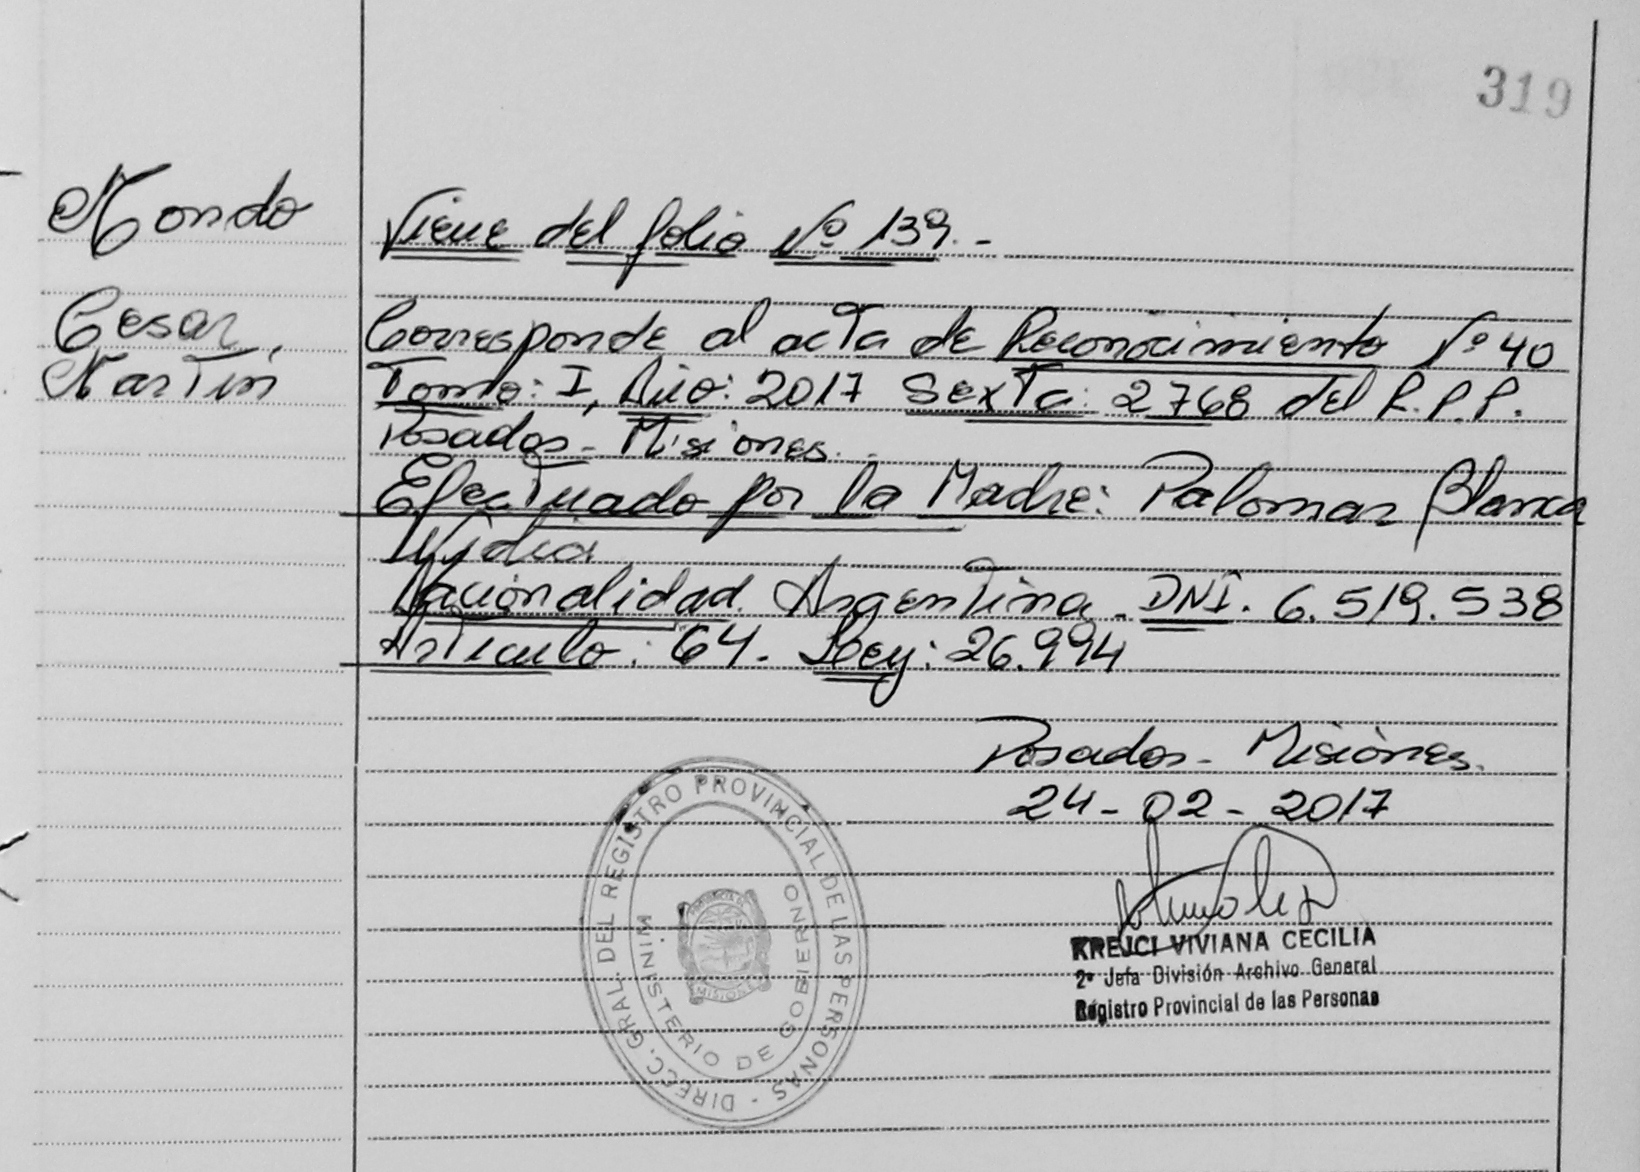 319
Mondo
Cesar,
Martin
Viene del folio Nº 139.-
Corresponde al acta de Reconocimiento Nº 40
Tomo: I, Año: 2017 Sexta: 2768 del R.P.P.
Posadas - Misiones.
Efectuado por la Madre: Palomar Blanca
Nidia
Nacionalidad. Argentina - DNI. 6.519.538
Articulo: 64. Ley: 26.994
Posadas - Misiones.
24-02-2017
KREJCI VIVIANA CECILIA
2º Jefa División Archivo General
Registro Provincial de las Personas
DIRECC. GRAL. DEL REGISTRO PROVINCIAL DE LAS PERSONAS -
MINISTERIO DE GOBIERNO
MISIONES